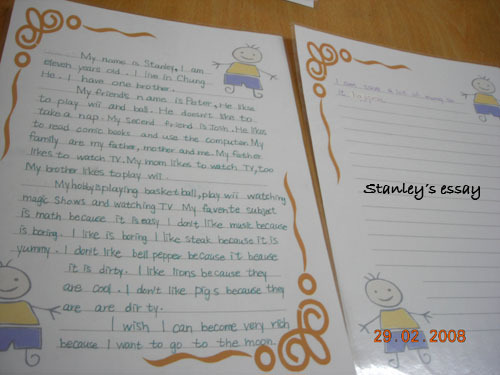 My name is Stanley. I am
eleven years old. I live in Chung
Ho. I have one brother.
My friends name is Peter. He likes
to play wii and ball. He doesn't like to
take a nap. My second friend is Josh. He likes
to read comic books and use the computer. My
family are my father, mother and me. My father
likes to watch TV. My mom likes to watch TV, too
My brother likes to play wii.
My hobby is playing basketball, play wii watching
magic shows and watching TV. My favorite subject
is math because it is easy I don't like music because
is boring. I like is boring I like steak because it is
yummy. I don't like bell pepper because it beause
it is dirty. I like lions because they
are cool. I don't like pigs because they
are are dirty.
I wish I can become very rich
because I want to go to the moon.
I can save a lot of money so
it
Stanley's essay
29.02.2008